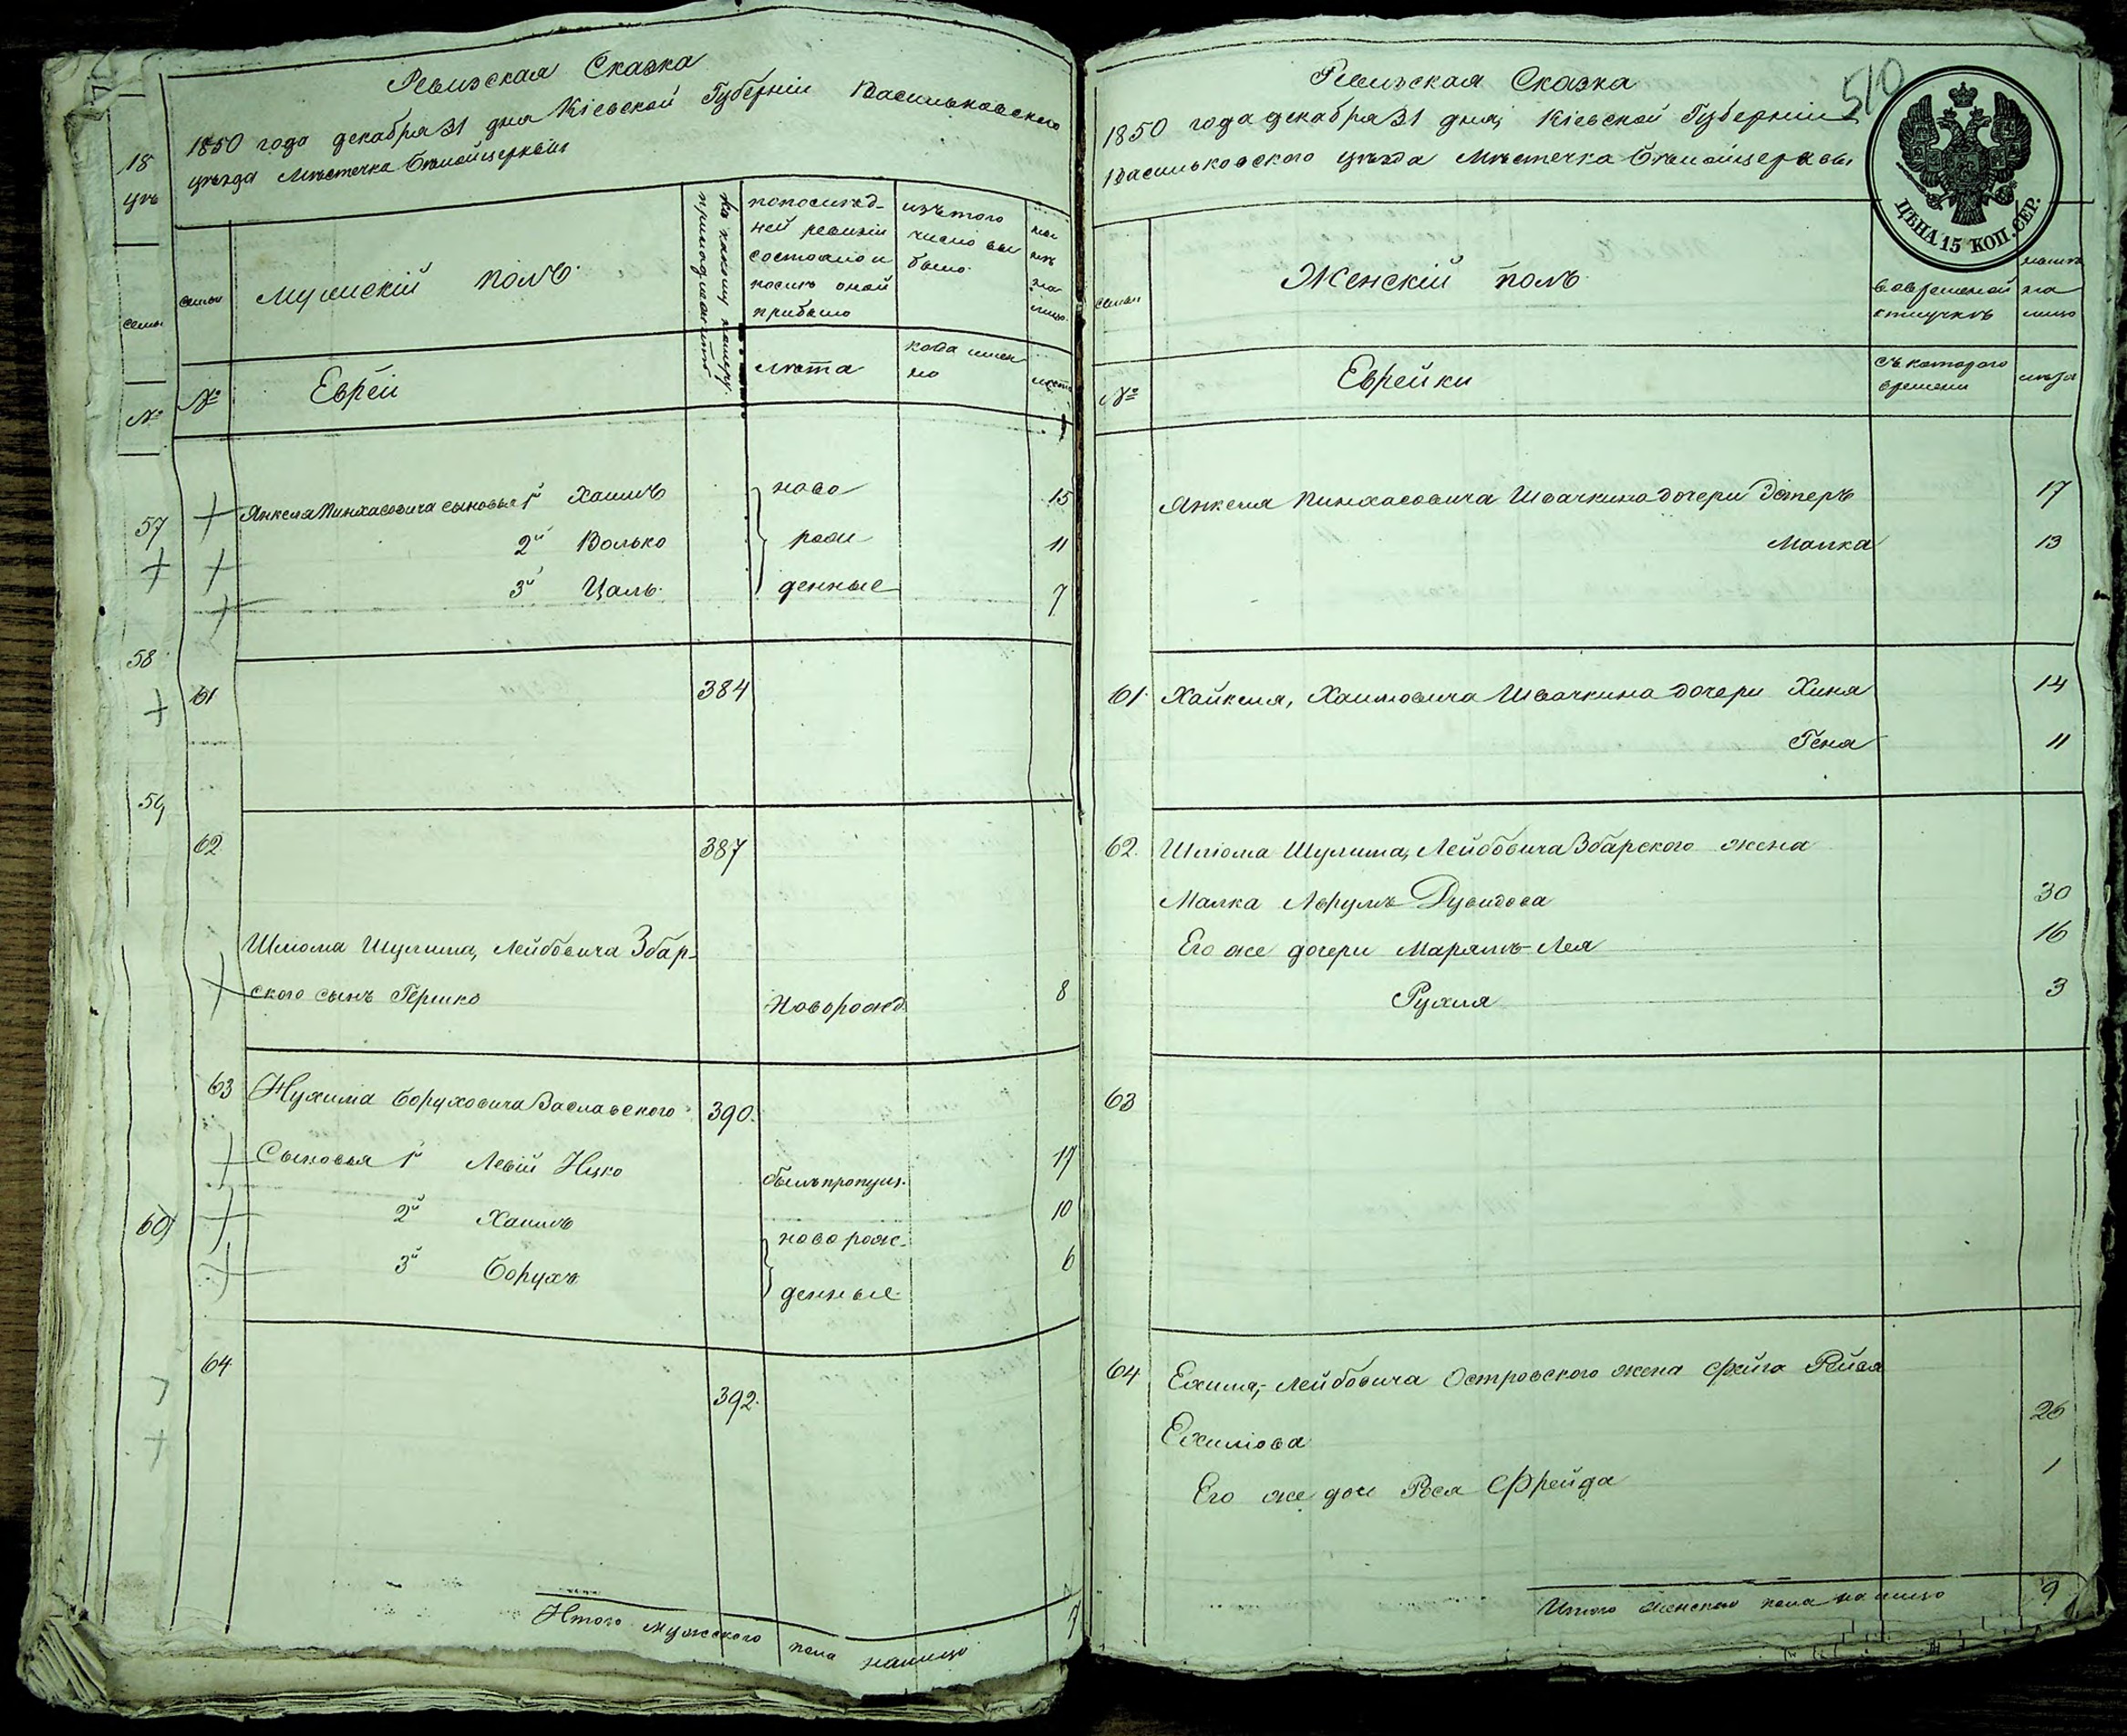 Ревизская Сказка
1850 года декабря 31 дня Кіевской Губерніи Васильковского
уѣзда Мѣстечка Бѣлойцеркви
18
уѣз
семьи
№
57
58
59
60
семьи
Мужескій полъ
къ какому нашеру
принадлежитъ
по послѣд-
ней ревизіи
состояло и
послѣ оной
прибыло
изъ того
число вы
было
на
лицо
№
Еврѣи
лѣта
когда имен
но
лѣта
Янкеля Пинхасовича сыновья 1й Хаимъ
ново
15
2й Волько
рож
11
3й Цаль
денные
7
61
384
62
387
Шліома Шулима, Лейбовича Збар-
ского сынъ Гершко
новорожд.
8
63
Нухима Боруховича Заславского
390.
Сыновья 1й Левій Ицко
былъ пропущ.
17
2й Хаимъ
10
новорож-
3й Борухъ
6
денные
64
392.
Итого мужеского пола налицо
7
Ревизская Сказка
510
1850 года декабря 31 дня, Кіевской Губерніи
Васильковского уѣзда Мѣстечка Бѣлойцеркви
ЦѢНА 15 КОП. СЕР.
семьи
Женскій полъ
во временной
отлучкѣ
на
лицо
№
Еврейки
съ которого
времени
лѣта
Янкеля Пинхасовича Швачкина дочери Эстеръ
17
Малка
13
61. Хайкеля, Хаимовича Швачкина дочери Хиня
14
Геня
11
62. Шліома Шулима, Лейбовича Збарского жена
Малка Аврумъ Дувидова
30
Его же дочери Марямъ-Лея
16
Рухля
3
63
64 Ехиля, Лейбовича Островского жена Фейга Рейзя
Ехиліова
26
Его же доч Рося Фрейда
1
Итого женского пола на лицо
9